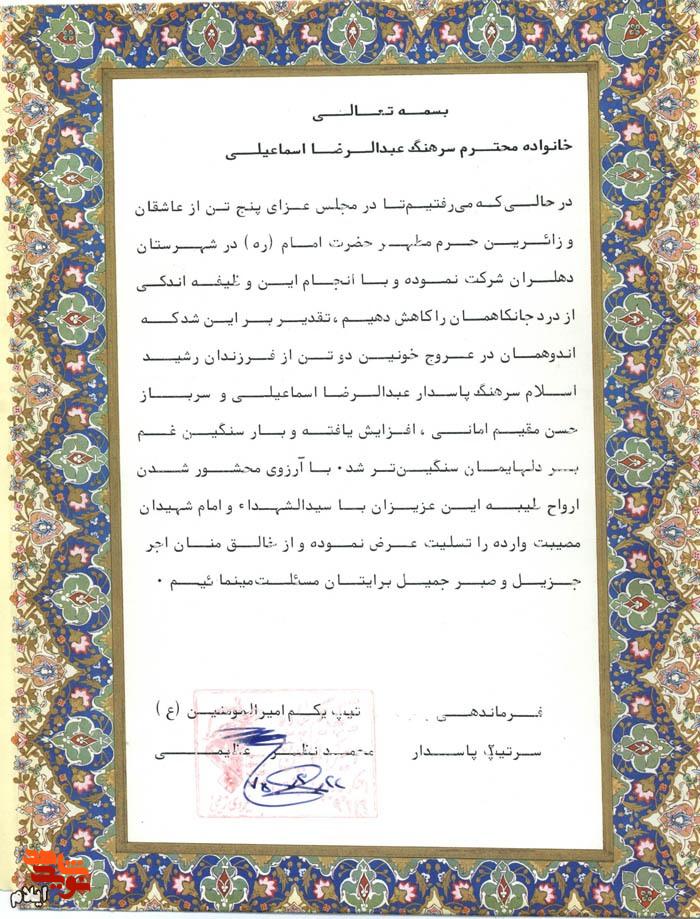 بسمه تعالی
خانواده محترم سرهنگ عبدالرضا اسماعیلی
در حالی که می‌رفتیم تا در مجلس عزای پنج تن از عاشقان
و زائرین حرم مطهر حضرت امام (ره) در شهرستان
دهلران شرکت نموده و با انجام این وظیفه اندکی
از درد جانکاهمان را کاهش دهیم ، تقدیر بر این شد که
اندوهمان در عروج خونین دو تن از فرزندان رشید
اسلام سرهنگ پاسدار عبدالرضا اسماعیلی و سرباز
حسن مقیم امانی ، افزایش یافته و بار سنگین غم
بر دلهایمان سنگین‌تر شد . با آرزوی محشور شدن
ارواح طیبه این عزیزان با سیدالشهداء و امام شهیدان
مصیبت وارده را تسلیت عرض نموده و از خالق منان اجر
جزیل و صبر جمیل برایتان مسئلت مینمائیم .
فرماندهی تیپ یکم امیرالمومنین (ع)
سرتیپ پاسدار محمد نظر عظیمی
ایلام